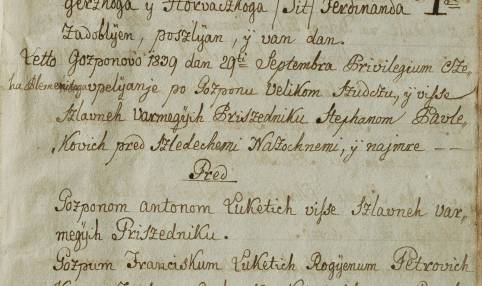 gerzkoga y Horvaczkoga /Tit/ Ferdinanda I
Zadoblyen, poszlyan, y van dan.
Letto Gozponovo 1839 dan 29ti Septembra Privilegium Cze-
ha Plemenitoga vpelyanje po Gozponu velikom Szudczu, y visse
szlavneh varmegyih Priszedniku Stephanom Pavle-
kovich pred szledechemi Nazochnemi, y najmre — —
Pred
Gozponom antonom Luketich visse szlavneh var-
megyih Priszedniku.
Gozpum Franciskum Luketich Rogyenum Petrovich